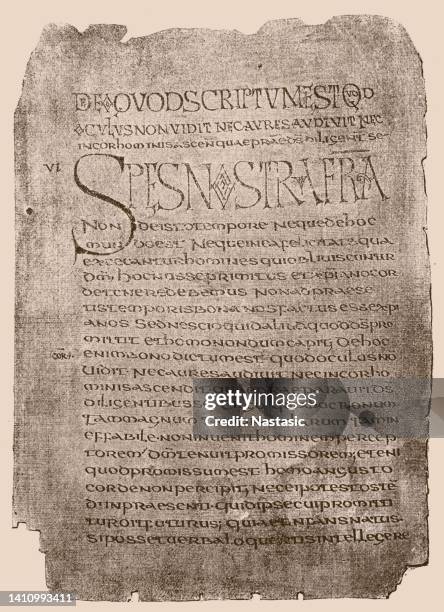 DE EO QUOD SCRIPTUM EST QUOD
OCULUS NON VIDIT NEC AURES AUDIVIT NEC
IN COR HOMINIS ASCEN QUAE PRAE DS DILIGENT SE
VI
SPES NOSTRA FRA
NON DE ISTO TEMPORE NEQUE DE HOC
MUNDO EST NEQUE IN EA FELICITATE QUA
EXCECANTUR HOMINES QUI OBLIVISCUNTUR
DM HOC NOSSE PRIMITUS ET XPIANO COR
DE TENERE DEBEMUS NON AD PRAESE
TIS TEMPORIS BONA NOS FACTUS ESSE XPI
ANOS SED NESCIO QUID ALIUT QUOD DS PRO
MITTIT ET HOMO NON DUM CAPIT DE HOC
COR I
ENIM BONO DICTUM EST QUOD OCULUS NO
VIDIT NEC AURES AUDIVIT NEC IN COR HO
MINIS ASCENDIT QUAE PARAVIT DS
DILIGENTIBUS
TAM MAGNUM TAM IN
EFFABILE NON INVENIT HOMINEM PERCEP
TOREM DM TENUIT PROMISSOREM ET ENI
QUOD PROMISSUM EST HOMO ANGUSTO
CORDE NON PERCIPIT NEC EI POTEST OSTE
DI IN PRAESENTI QUID IPSE CUI PROMITTI
TUR SIT FUTURUS QUIA ET INFANS NATUS
SI POSSET VERBA LOQUENTIS INTELLEGERE
gettyimages
Credit: Nastasic
1410993411